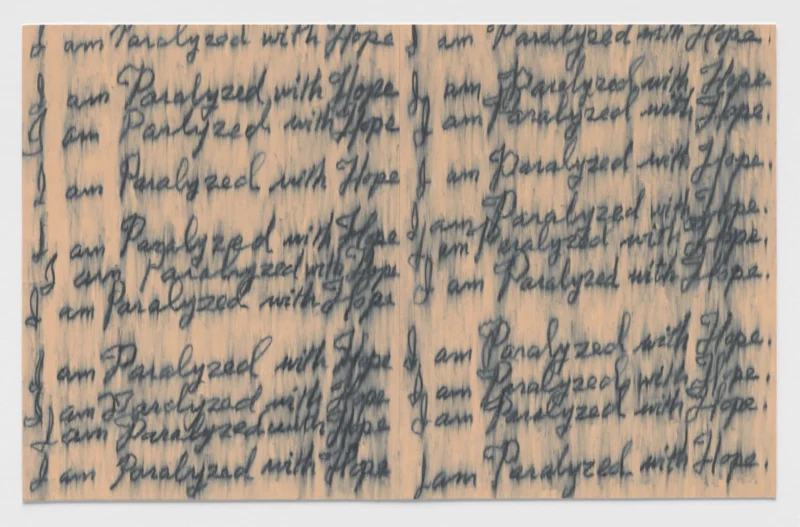 I am Paralyzed with Hope
I am Paralyzed with Hope
I am Paralyzed with Hope
I am Paralyzed with Hope
I am Paralyzed with Hope
I am Paralyzed with Hope
I am Paralyzed with Hope
I am Paralyzed with Hope
I am Paralyzed with Hope
I am Paralyzed with Hope
I am Paralyzed with Hope
I am Paralyzed with Hope.
I am Paralyzed with Hope.
I am Paralyzed with Hope.
I am Paralyzed with Hope.
I am Paralyzed with Hope.
I am Paralyzed with Hope.
I am Paralyzed with Hope.
I am Paralyzed with Hope.
I am Paralyzed with Hope.
I am Paralyzed with Hope.
I am Paralyzed with Hope.